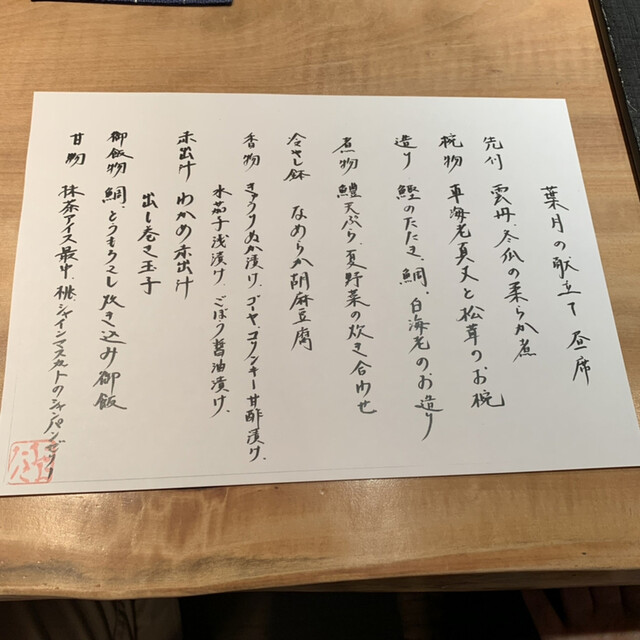 葉月の献立て 昼席
先付 雲丹、冬瓜の柔らか煮
椀物 車海老真丈と松茸のお椀
造り 鰹のたたき、鯛、白海老のお造り
煮物 鱧天ぷら、夏野菜の炊き合わせ
冷し鉢 なめらか胡麻豆腐
香物 きゅうりぬか漬け、ゴーヤ、コリンキー甘酢漬け、
水茄子浅漬け、ごぼう醤油漬け、
赤出汁 わかめ赤出汁
出し巻き玉子
御飯物 鯛とうもろこし炊き込み御飯
甘物 抹茶アイス最中、桃、シャインマスカットのシャンパンゼリー